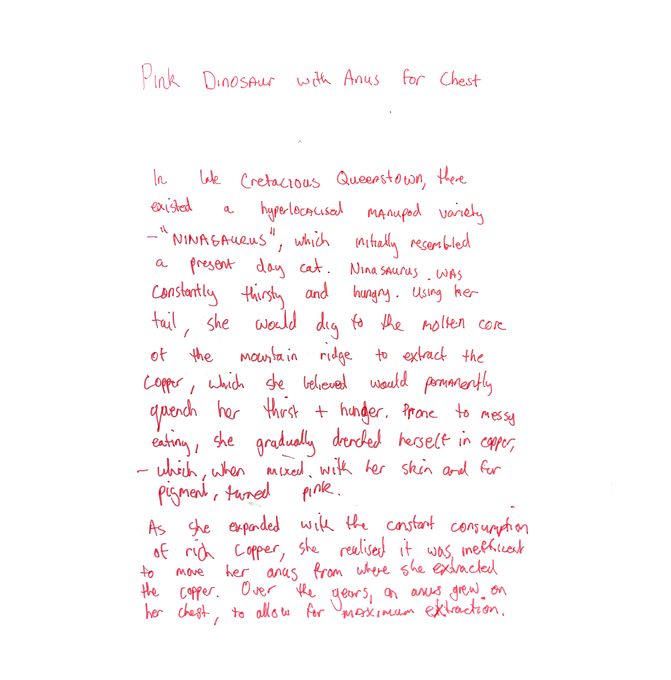 Pink Dinosaur with Anus for Chest
In late Cretacious Queenstown, there
existed a hyperlocalised manupod variety
– "NINASAURUS", which initially resembled
a present day cat. Ninasaurus was
constantly thirsty and hungry. Using her
tail, she would dig to the molten core
of the mountain ridge to extract the
copper, which she believed would permanently
quench her thirst + hunger. Prone to messy
eating, she gradually drenched herself in copper,
– which, when mixed with her skin and fur
pigment, turned pink.
As she expanded with the constant consumption
of rich copper, she realised it was inefficient
to move her anus from where she extracted
the copper. Over the years, an anus grew on
her chest, to allow for maximum extraction.